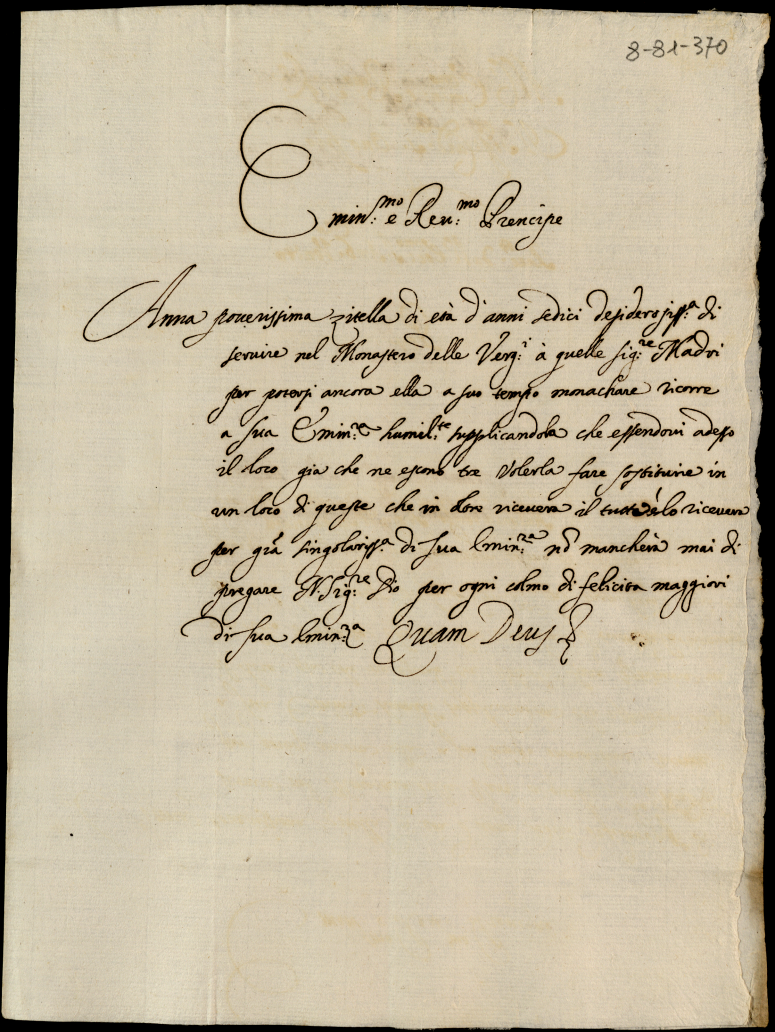 8-81-370
Emin:mo e Reu:mo Prencipe
Anna pouerissima zitella di età d'anni sedici desiderosiss:a di
seruire nel Monastero delle Verg:i à quelle sig:re Madri
per potersi ancora ella a suo tempo monachare ricorre
a sua Emin:za humil:te supplicandola che essendoui adesso
il loco gia che ne escono tre volerla fare sostituire in
un loco di queste che in dore riceuera il tutto è lo riceuera
per gra singolariss:a di sua Emin:za nō mancherà mai di
pregare N. Sig:re Dio per ogni colmo di felicita maggiori
di sua Emin:za Quam Deus